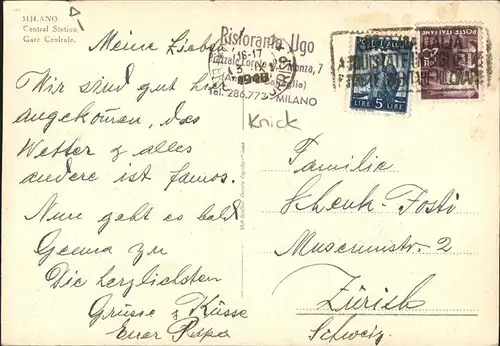 MILANO
Central Station
Gare Centrale.
Meine Lieben
Wir sind gut hier
angekommen, das
Wetter & alles
andere ist famos.
Nun geht es bald
Genua zu
Die herzlichsten
Grüsse & Küsse
Euer Papa
Ristorante Ugo
Piazzale Loreto Monza, 7
Tel. 286.773 - MILANO
16-17
IX
1948
Knick
POSTE ITALIANE
LIRE 5 LIRE
Familie
Schenk-Fosti
Museumstr. 2
Zürich
Schweiz.